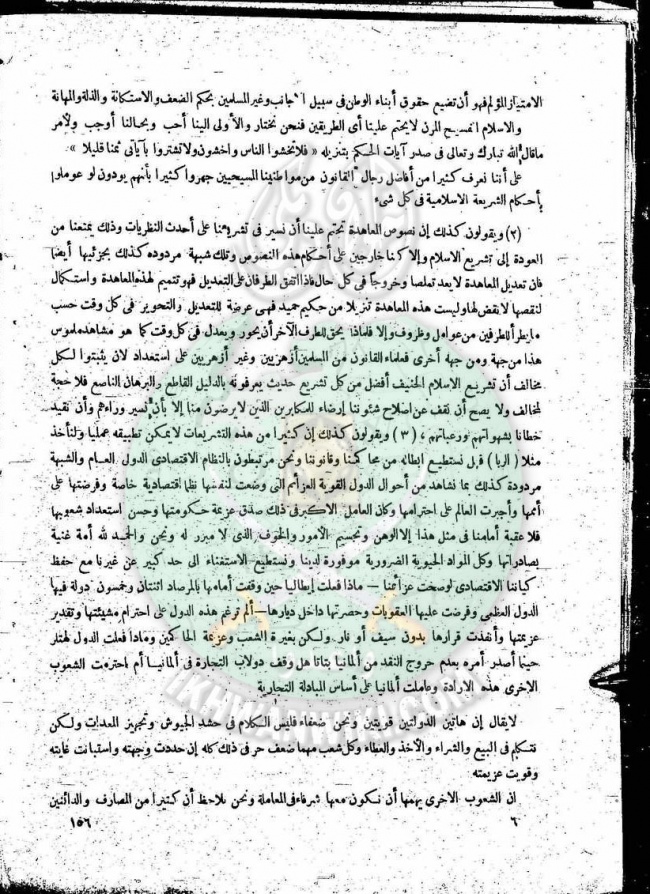 الامتياز المؤلم فهو أن تضيع حقوق أبناء الوطن فى سبيل الأجانب وغير المسلمين بحكم الضعف والاستكانة والذلة والمهانة
والاسلام الفسيح المرن لا يحتم علينا أى الطريقين فنحن نختار والأولى الينا أحب وبحالنا أوجب ولأمر
ماقال الله تبارك وتعالى فى صدر آيات الحكم بتنزيله « فلا تخشوا الناس واخشون ولا تشتروا بآياتى ثمنا قليلا »
على أننا نعرف كثيرا من أفاضل رجال القانون من مواطنينا المسيحيين جهروا كثيرا بأنهم يودون لو عوملوا
بأحكام الشريعة الاسلامية فى كل شىء
(٢) ويقولون كذلك إن نصوص المعاهدة تحتم علينا أن نسير فى تشريعنا على أحدث النظريات وذلك يمنعنا من
العودة إلى تشريع الاسلام وإلا كنا خارجين على أحكام هذه النصوص وتلك شبهة مردوده كذلك بجزئيها أيضا
فان تعديل المعاهدة لا يعد تملصا وخروجا فى كل حال فاذا اتفق الطرفان على التعديل فهو تتميم لهذه المعاهدة واستكمال
لنقصها لا نقض لها وليست هذه المعاهدة تنزيلا من حكيم حميد فهى عرضة للتعديل والتحوير فى كل وقت حسب
ما يطرأ للطرفين من عوامل وظروف وإلا فلماذا يحق للطرف الآخر أن يحور ويعدل فى كل وقت كما هو مشاهد ملموس
هذا من جهة ومن جهة أخرى فعلماء القانون من المسلمين أزهريين وغير أزهريين على استعداد لان يثبتوا لكل
مخالف أن تشريع الاسلام الحنيف أفضل من كل تشريع حديث يعرفونه بالدليل القاطع والبرهان الناصع فلا حجة
لمخالف ولا يصح أن نقف عن اصلاح شئوننا إرضاء للمكابرين الذين لا يرضون منا إلا بأن نسير وراءهم وأن نقيد
خطانا بشهواتهم ورغباتهم ، (٣) ويقولون كذلك إن كثيرا من هذه التشريعات لا يمكن تطبيقه عمليا ولنأخذ
مثلا (الربا) فهل نستطيع ابطاله من محاكمنا وقانوننا ونحن مرتبطون بالنظام الاقتصادى الدولى العام والشبهة
مردودة كذلك بما نشاهد من أحوال الدول القوية العزائم التى وضعت لنفسها نظما اقتصادية خاصة وفرضتها على
أممها وأجبرت العالم على احترامها وكان العامل الاكبر فى ذلك صدق عزيمة حكومتها وحسن استعداد شعوبها
فلا عقبة أمامنا فى مثل هذا إلا الوهن وتجسيم الأمور والخوف الذى لا مبرر له ونحن والحمد لله أمة غنية
بصادراتها وكل المواد الحيوية الضرورية موفورة لدينا ونستطيع الاستغناء الى حد كبير عن غيرنا مع حفظ
كياننا الاقتصادى لو صحت عزائمنا — ماذا فعلت إيطاليا حين وقفت أمامها بالمرصاد اثنتان وخمسون دولة فيها
الدول العظمى وفرضت عليها العقوبات وحصرتها داخل ديارها — ألم ترغم هذه الدول على احترام مشيئتها وتقدير
عزيمتها وأنفذت قرارها بدون سيف أو نار. ولكن بغيرة الشعب وعزيمة الحاكمين وماذا فعلت الدول لهتلر
حينما أصدر أمره بعدم خروج النقد من ألمانيا بتاتا هل وقف دولاب التجارة فى ألمانيا أم احترمت الشعوب
الاخرى هذه الارادة وعاملت ألمانيا على أساس المبادلة التجارية
لا يقال إن هاتين الدولتين قويتين ونحن ضعفاء فليس الكلام فى حشد الجيوش وتجهيز المعدات ولكن
نتكلم فى البيع والشراء والأخذ والعطاء وكل شعب مهما ضعف حر فى ذلك كله إن حددت وجهته واستبانت غايته
وقويت عزيمته
ان الشعوب الاخرى يهمها أن نكون معها شرفاء فى المعاملة ونحن نلاحظ أن كثيرا من المصارف والدائنين
٦
١٥٦
IKHWANWIKI.COM